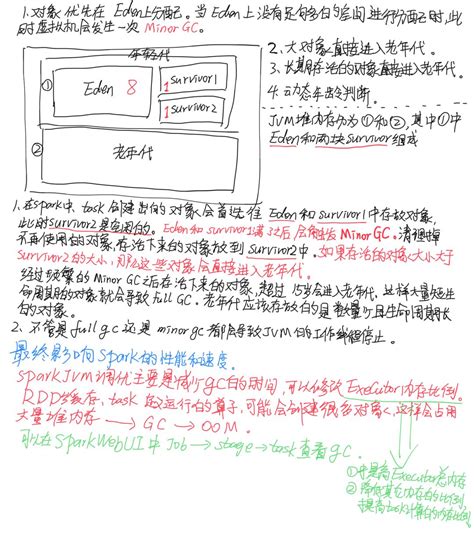 1.对象优先在Eden上分配。当Eden上没有足够多的空间进行分配时,此
时虚拟机会发生一次 Minor GC.
年轻代
① Eden 8
1 survivor1
1 survivor2
② 老年代
2、大对象直接进入老年代。
3、长期存活的对象直接进入老年代。
4. 动态年龄判断.
JVM堆内存分为①和②,其中①中
Eden和两块survivor组成
1、在spark中, task创建出的对象会首先往Eden和survivor1中存放对象,
此时survivor2是空闲的。Eden和survivor1满过后会触发MinorGC。清理掉
不再使用的对象,存活下来的对象放到survivor2中。如果存活的对象大小大于
survivor2的大小,那么这些对象会直接进入老年代。
经过频繁的Minor GC之后存活下来的对象,超过15岁会进入老年代,这样大量短生
命周期的对象就会导致full GC. 老年代应该存放的是少数量且生命周期长
的对象。
2、不管是full gc还是minor gc都会导致JVM的工作线程停止。
最终影响Spark的性能和速度。
Spark JVM调优主要是减少GC的时间,可以修改Executor内存比例.
RDD缓存, task 运行的算子,可能会创建很多对象,这样会占用
大量堆内存 → GC → OOM.
可以在Spark WebUI中 Job → stage → task查看gc.
①提高Executor总内存
②降低其它内存的比例,
提高task计算的内存比例.